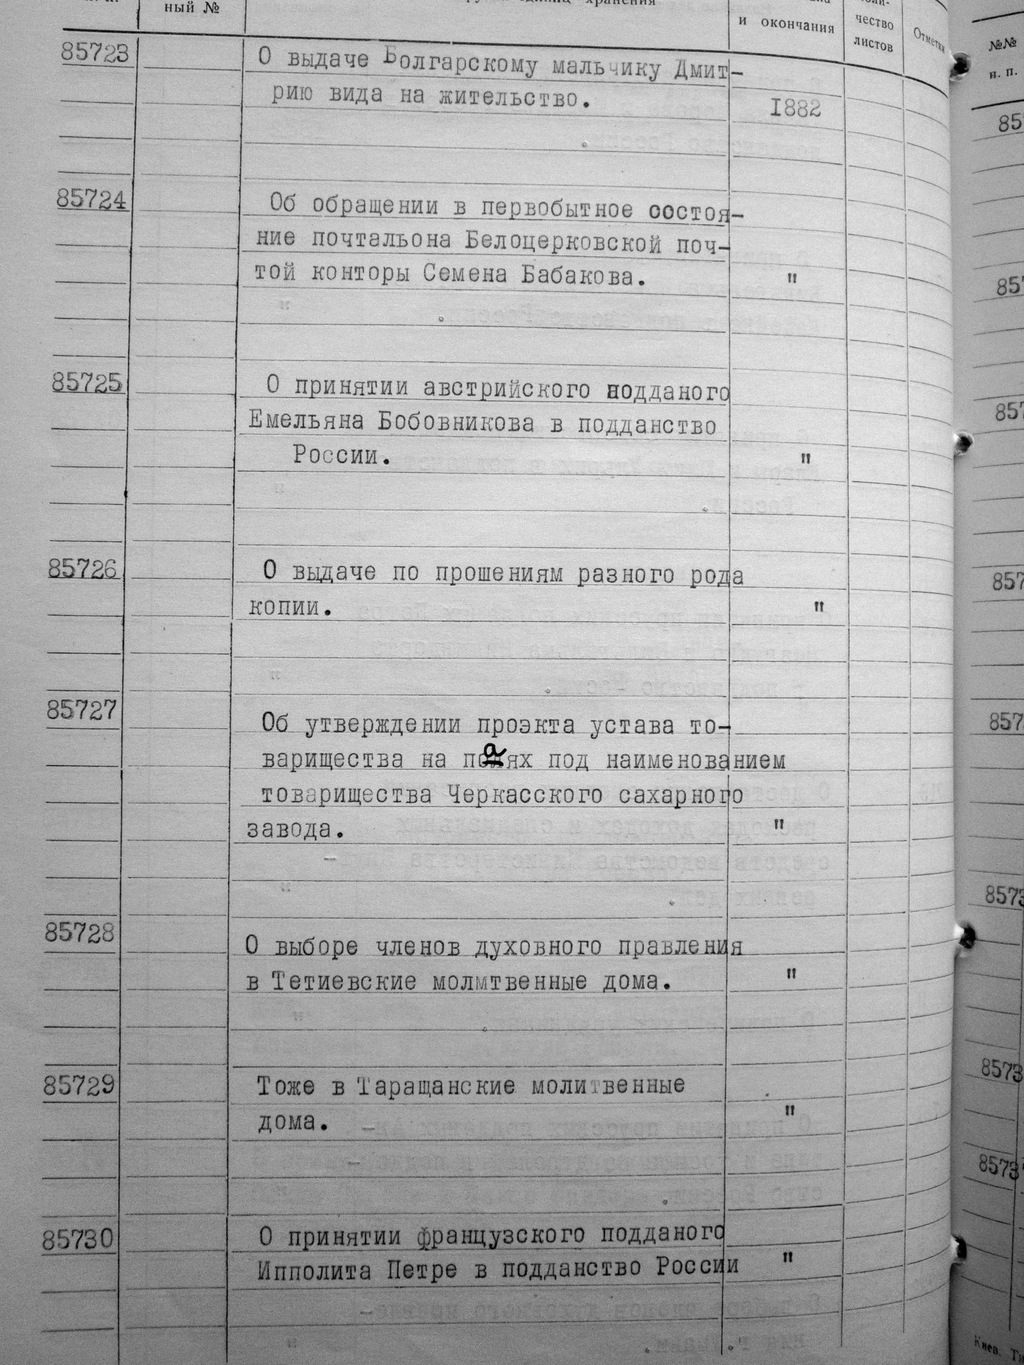 ный №
хранения
и окончания
чество
листов
Отметки
№№
п. п.
85723
О выдаче Болгарскому мальчику Дмит-
рию вида на жительство.
1882
85724
Об обращении в первобытное состоя-
ние почтальона Белоцерковской поч-
той конторы Семена Бабакова.
"
85725
О принятии австрийского подданого
Емельяна Бобовникова в подданство
России.
"
85726
О выдаче по прошениям разного рода
копии.
"
85727
Об утверждении проэкта устава то-
варищества на паях под наименованием
товарищества Черкасского сахарного
завода.
"
85728
О выборе членов духовного правления
в Тетиевские молмтвенные дома.
"
85729
Тоже в Таращанские молитвенные
дома.
"
85730
О принятии французского подданого
Ипполита Петре в подданство России
"